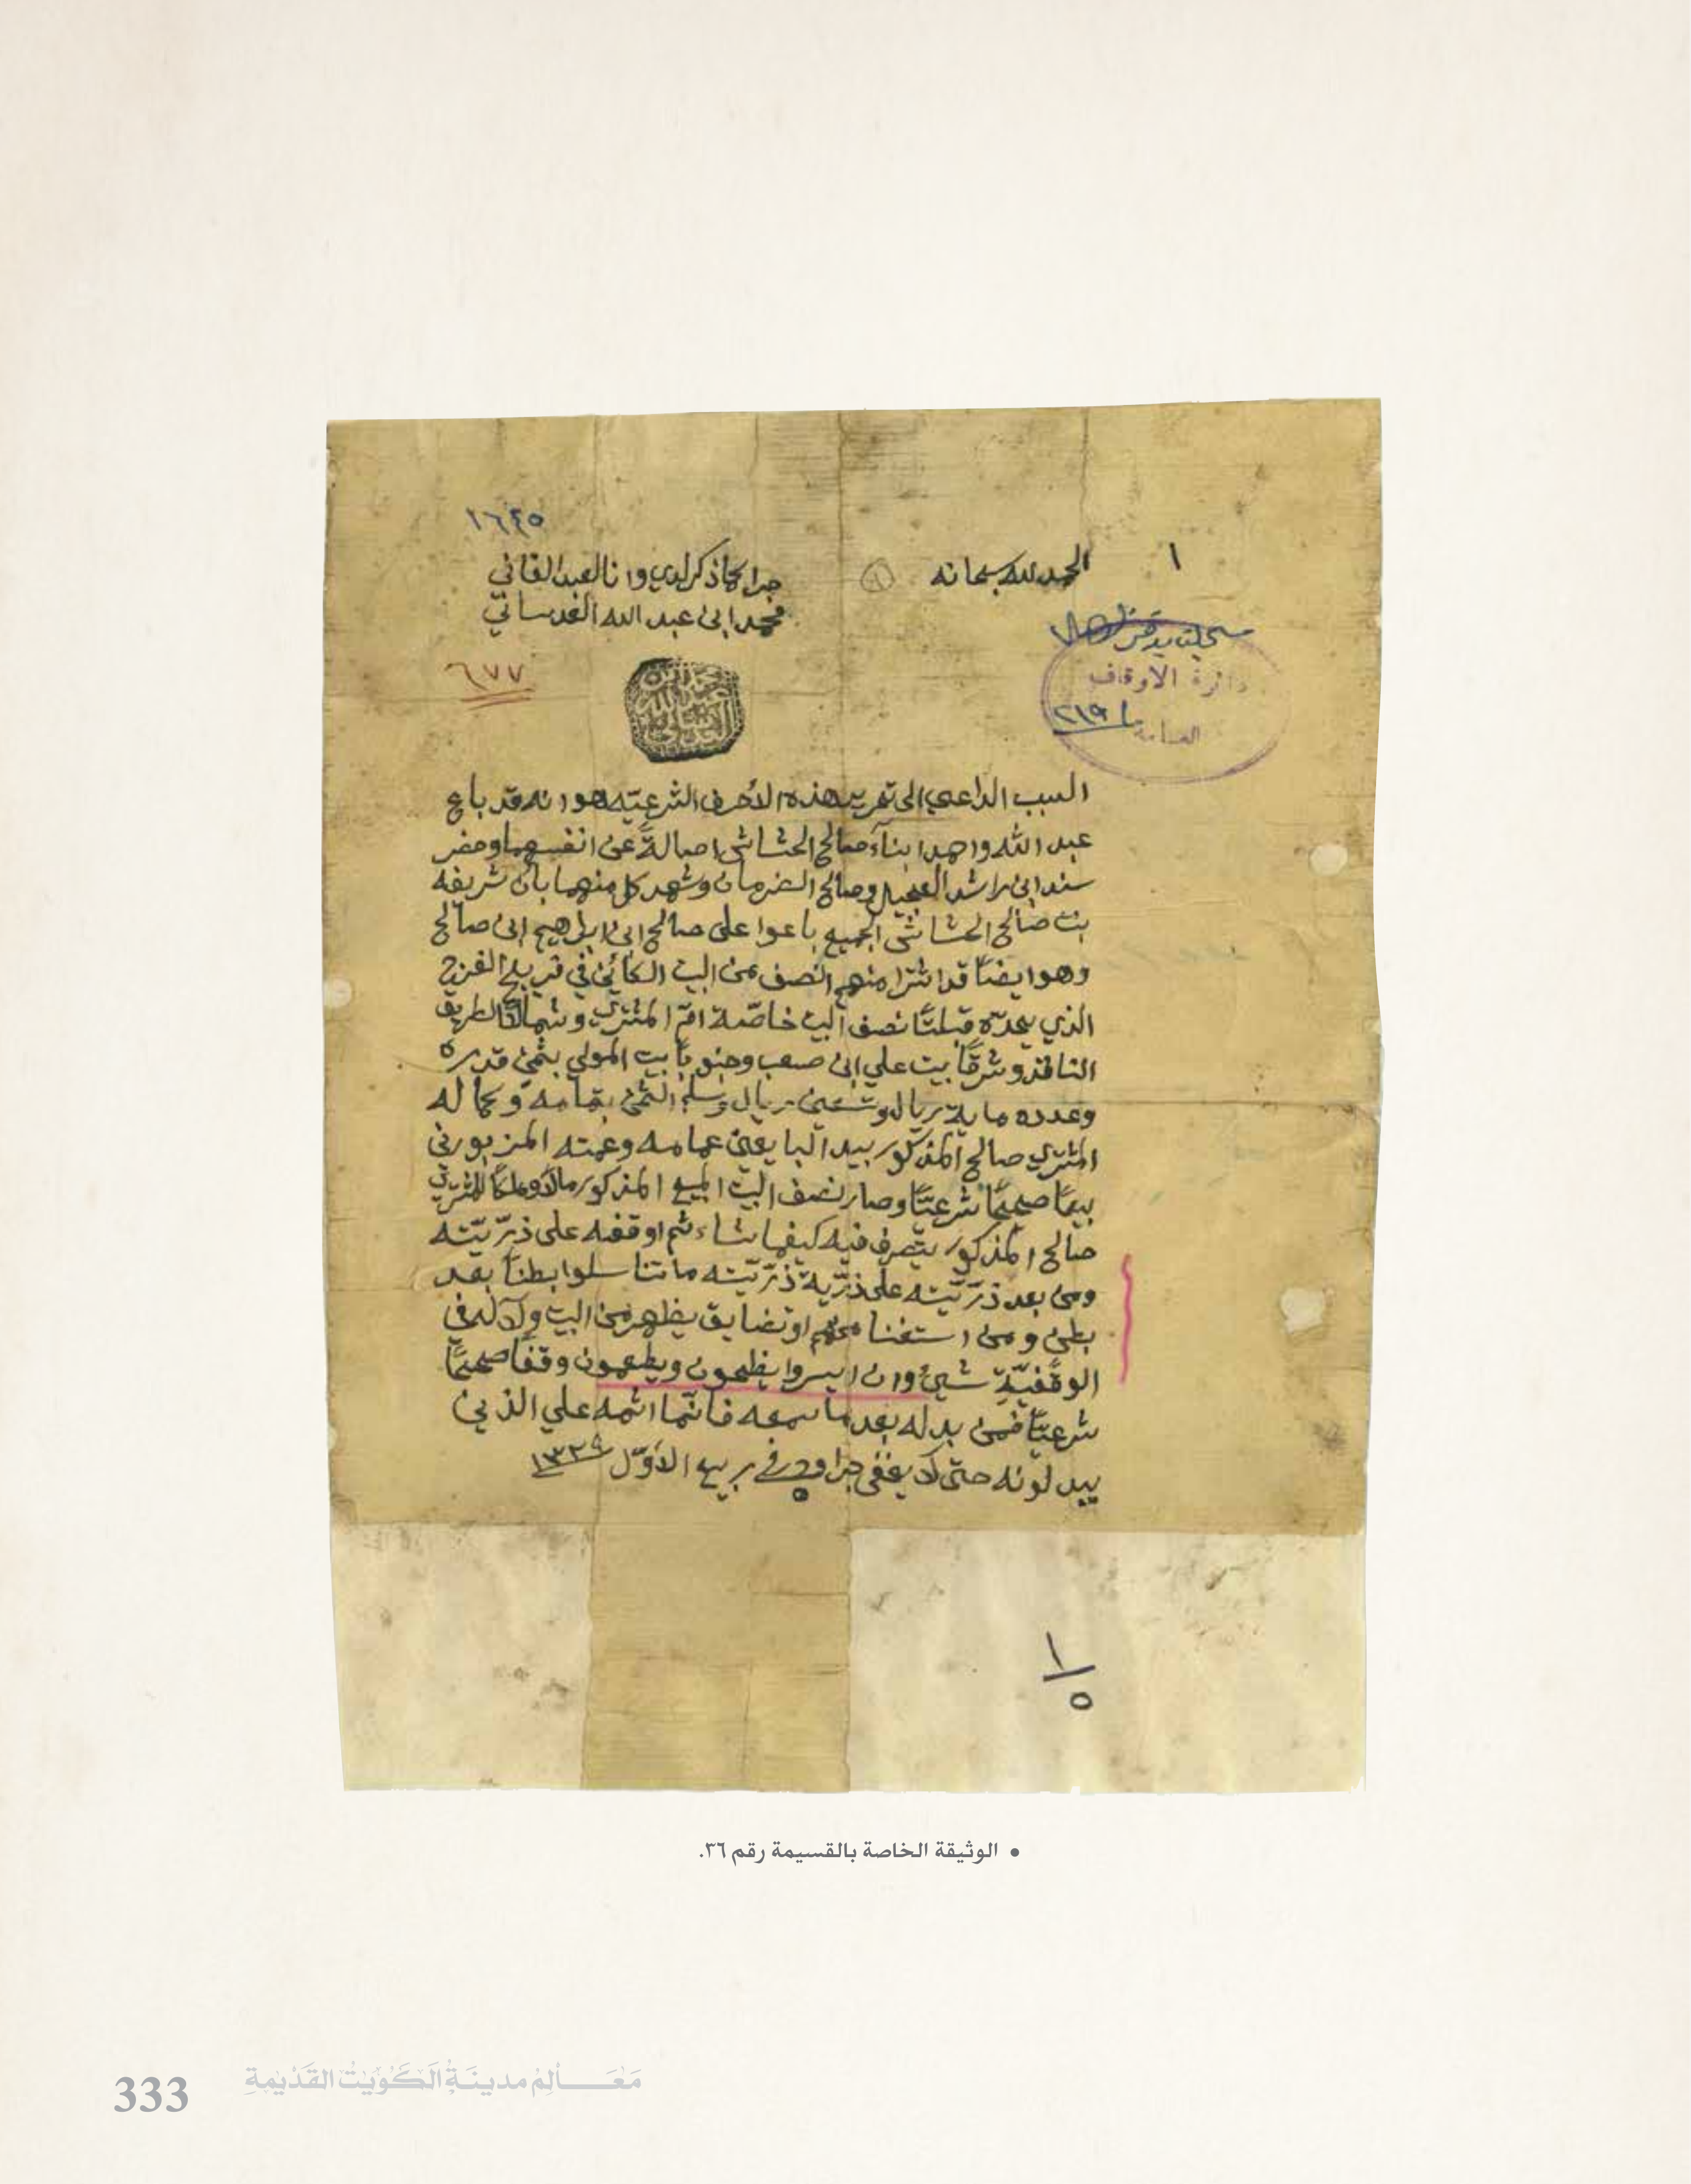 ١٦٤٥
١
الحمد لله سبحانه
جرا كما ذكر لدي وانا العبد الفاني
محمد ابن عبد الله العدساني
سجلت بدفتر
دائرة الاوقاف
العامة
٢١٩١
٦٧٧
السبب الداعي الى تحرير هذه الأحرف الشرعيّه هو انه قد باع
عبد الله واحمد ابناء صالح الحشاش اصالةً عن انفسهما وحضر
سند ابن راشد العجيل وصالح الضرمان وشهد كل منهما بأن شريفه
بنت صالح الحشاش الجميع باعوا على صالح ابن ابراهيم ابن صالح
وهو ايضاً قد اشترا منهم النصف من البيت الكائن في فريج الفرج
الذي يحدّه قبلتاً نصف البيت خاصّة امّ المشتري وشمالاً الطريق
النافذ وشرقاً بيت علي ابن صعب وجنوباً بيت المولي بثمن قدره
وعدده ماية ريال وتسعين ريال وسلم الثمن بتمامه وكماله
المشتري صالح المذكور بيد البايعين عمامه وعمته المزبورين
بيعاً صحيحاً شرعيّاً وصار نصف البيت المبيع المذكور مالاً وملكاً للمشتري
صالح المذكور يتصرف فيه كيفما شاء ثم اوقفه على ذرّيّته
ومن بعد ذرّيّته على ذرّية ذرّيّته ما تناسلوا بطناً بعد
بطن ومن استغنا منهم او تضايق يظهر من البيت ولا له في
الوقفيّة شيئ وان ايسروا يضحون ويطعمون وقفاً صحيحاً
شرعيّاً فمن بدله بعد ما سمعه فانّما اثمه علي الذين
يبدلونه حتى لا يخفى جرا وحرر في ٥ ربيع الأوّل ١٣٢٩
١
٥
• الوثيقة الخاصة بالقسيمة رقم ٣٦.
333
مَعَالِمْ مدينَةُ الكُوَيْتُ القَدْيمةِ